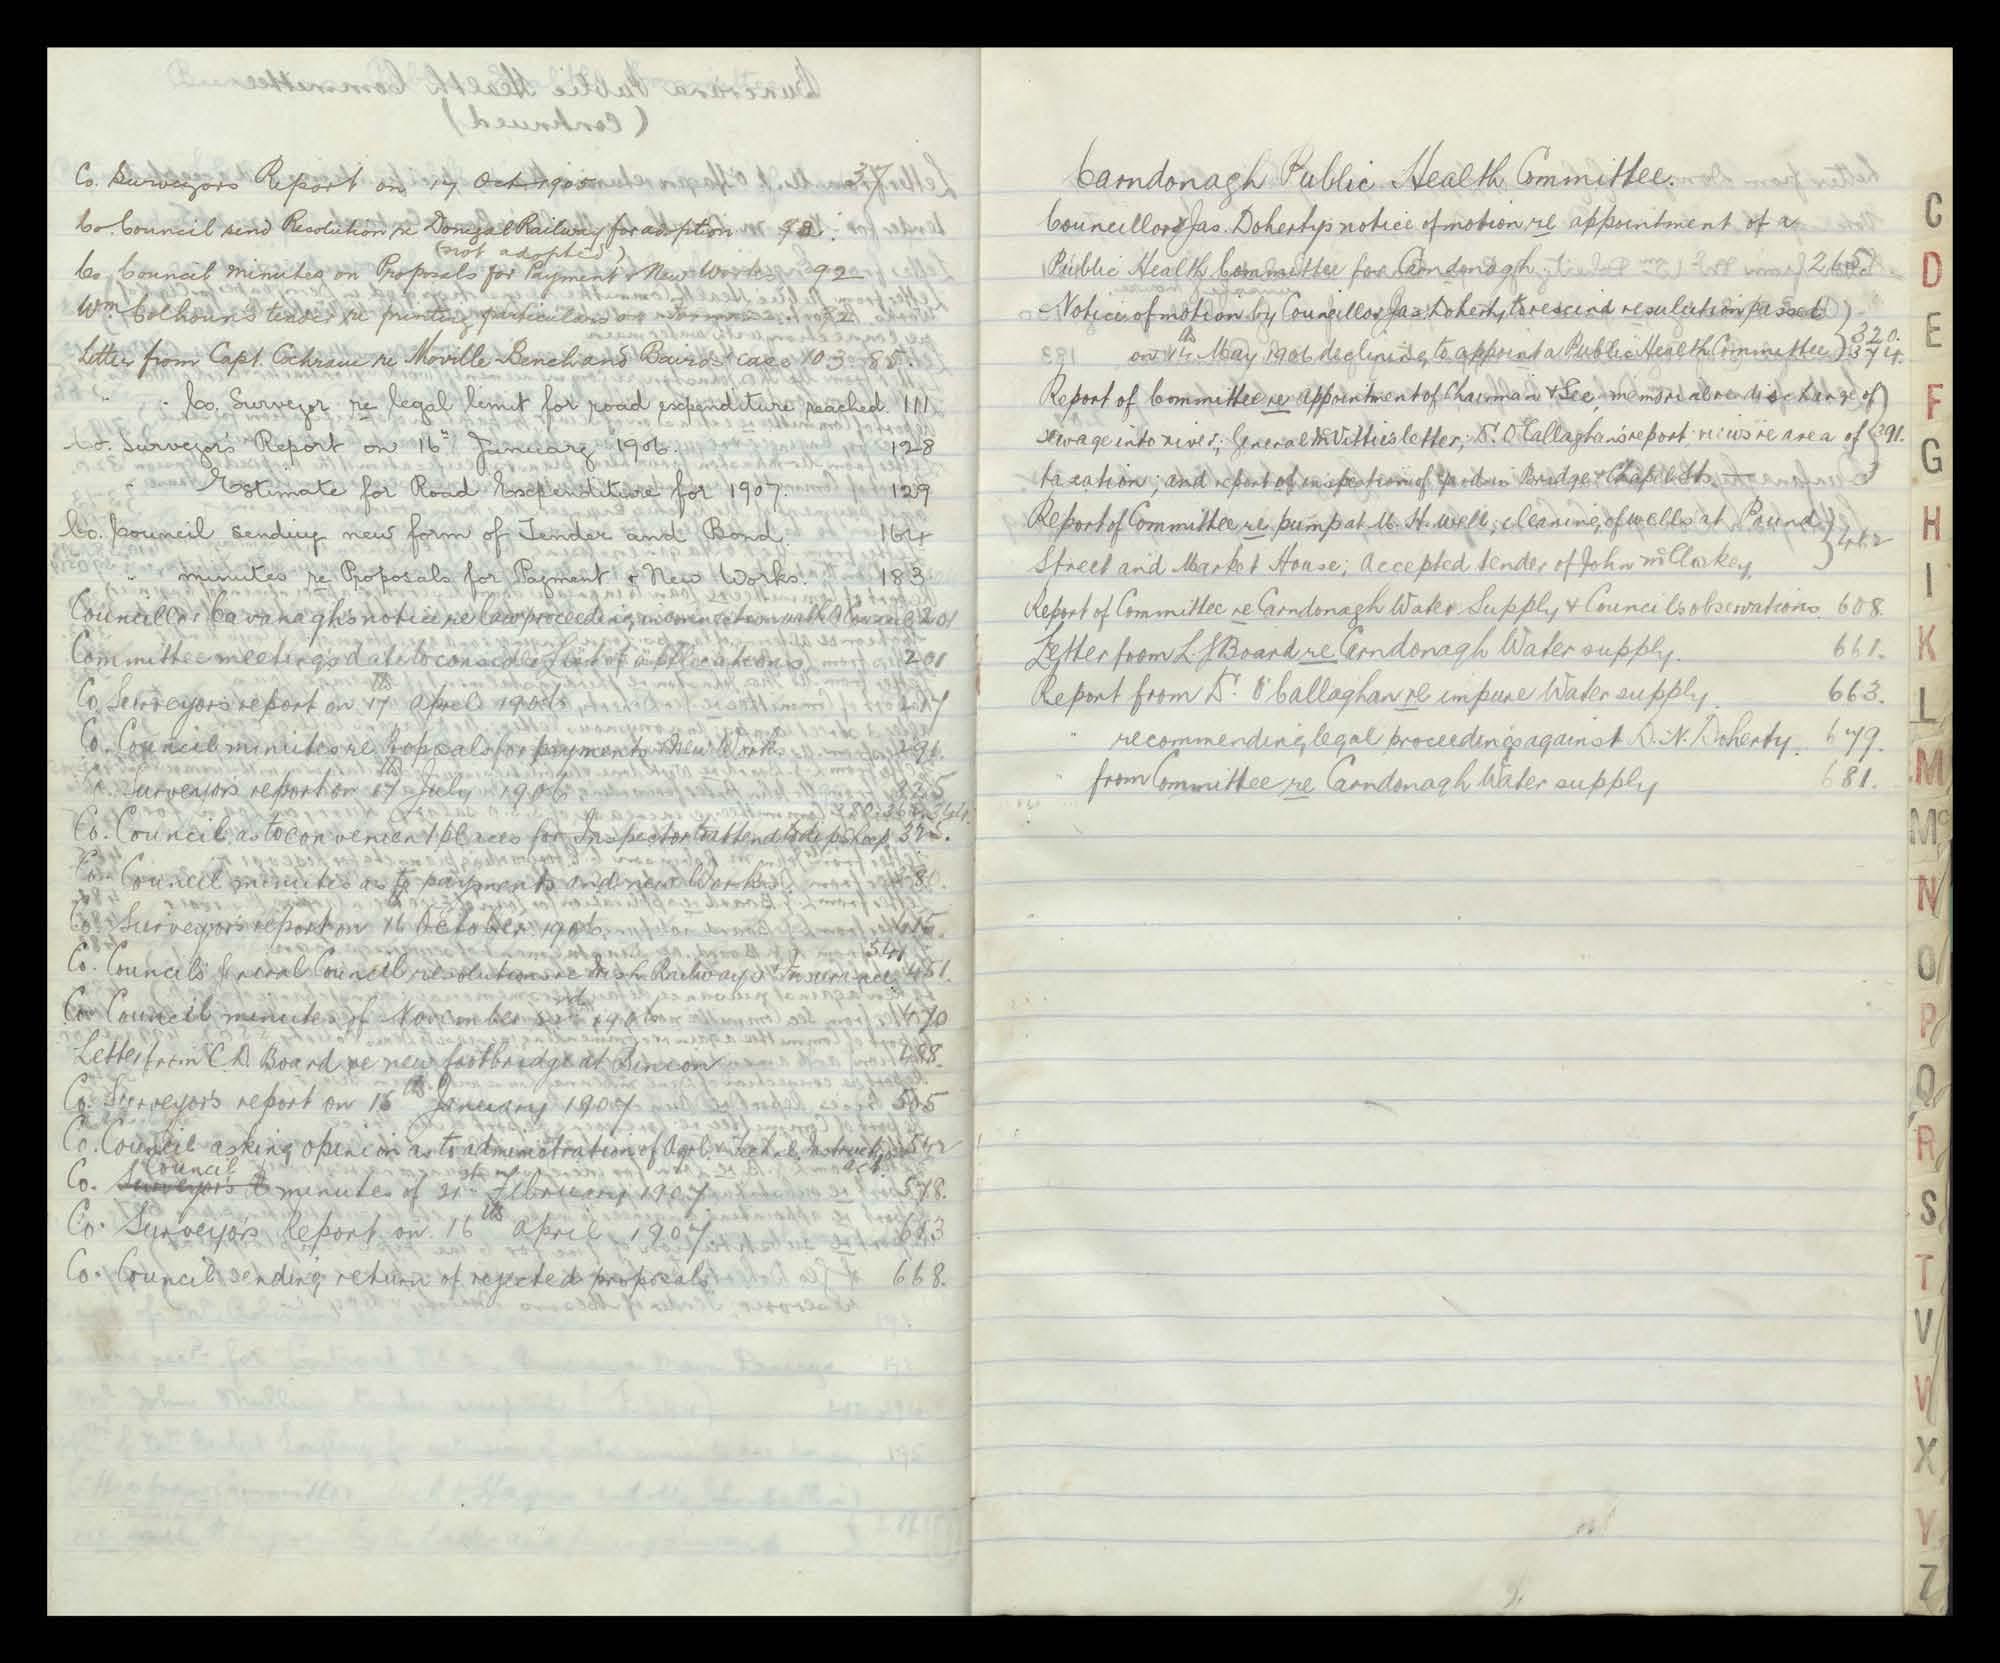 Co. Surveyors Report on 17 Oct. 1905 37
Co. Council send Resolution re Donegal Railway for adoption 92.
(not adopted)
Co. Council minutes on Proposals for Payment & New Works. 92
Wm. Colhoun's tender re printing particulars on 92
Letter from Capt. Cochrane re Moville Bench and Baird's case 103. 85.
" " Co. Surveyor re legal limit for road expenditure reached. 111
Co. Surveyor's Report on 16th January 1906. 128
" Estimate for Road Expenditure for 1907. 129
Co. Council sending new form of Tender and Bond. 164
" minutes re Proposals for Payment & New Works. 183
Councillor Cavanagh's notice re law proceedings in connection with 201
Committee meetings date to consider List of applications 201
Co. Surveyor's report on 17th April 1906 217
Co. Council minutes re Proposals for payments & New Works 291.
Co. Surveyor's report on 17th July 1906 325
380. 362. 364.
Co. Council as to convenient places for Inspector to attend to dip sheep 375.
Co. Council minutes as to payments and new Works. 380.
Co. Surveyor's report on 16th October 1906. 415.
541
Co. Councils' General Council resolutions re Irish Railways & Insurance 451.
Co. Council minutes of November 22nd 1906 470
Letter from C. D. Board re new footbridge at Binion 488.
Co. Surveyor's report on 15th January 1907 505
Co. Council asking opinion as to administration of Agrl. & Techcl. Instruction 542
act.
Council
Co. Surveyor's R minutes of 21st February 1907. 578.
Co. Surveyor's Report on 16th April 1907. 613
Co. Council sending return of rejected proposals 668.
Carndonagh Public Health Committee.
Councillor Jas. Doherty's notice of motion re appointment of a
Public Health Committee for Carndonagh. 265
Notice of motion by Councillor Jas. Doherty to rescind resolution passed
on 14th May 1906 declining to appoint a Public Health Committee 320. 374.
Report of Committee re appointment of Chairman & Sec, memorial re discharge of
sewage into river; General McVittie's letter; Dr. O'Callaghan's report; views re area of 391.
taxation; and report of inspection of yards in Bridge & Chapel Sts.
Report of Committee re pump at M. H. well; cleaning of wells at Pound
Street and Market House; accepted tender of John McCloskey. 412
Report of Committee re Carndonagh Water Supply & Council's observations 608.
Letter from L. G. Board re Carndonagh Water supply. 661.
Report from Dr. O'Callaghan re impure Water supply. 663.
" recommending legal proceedings against D. N. Doherty. 679.
" from Committee re Carndonagh Water supply 681.
C
D
E
F
G
H
I
K
L
M
Mc
N
O
P
Q
R
S
T
V
W
X
Y
Z